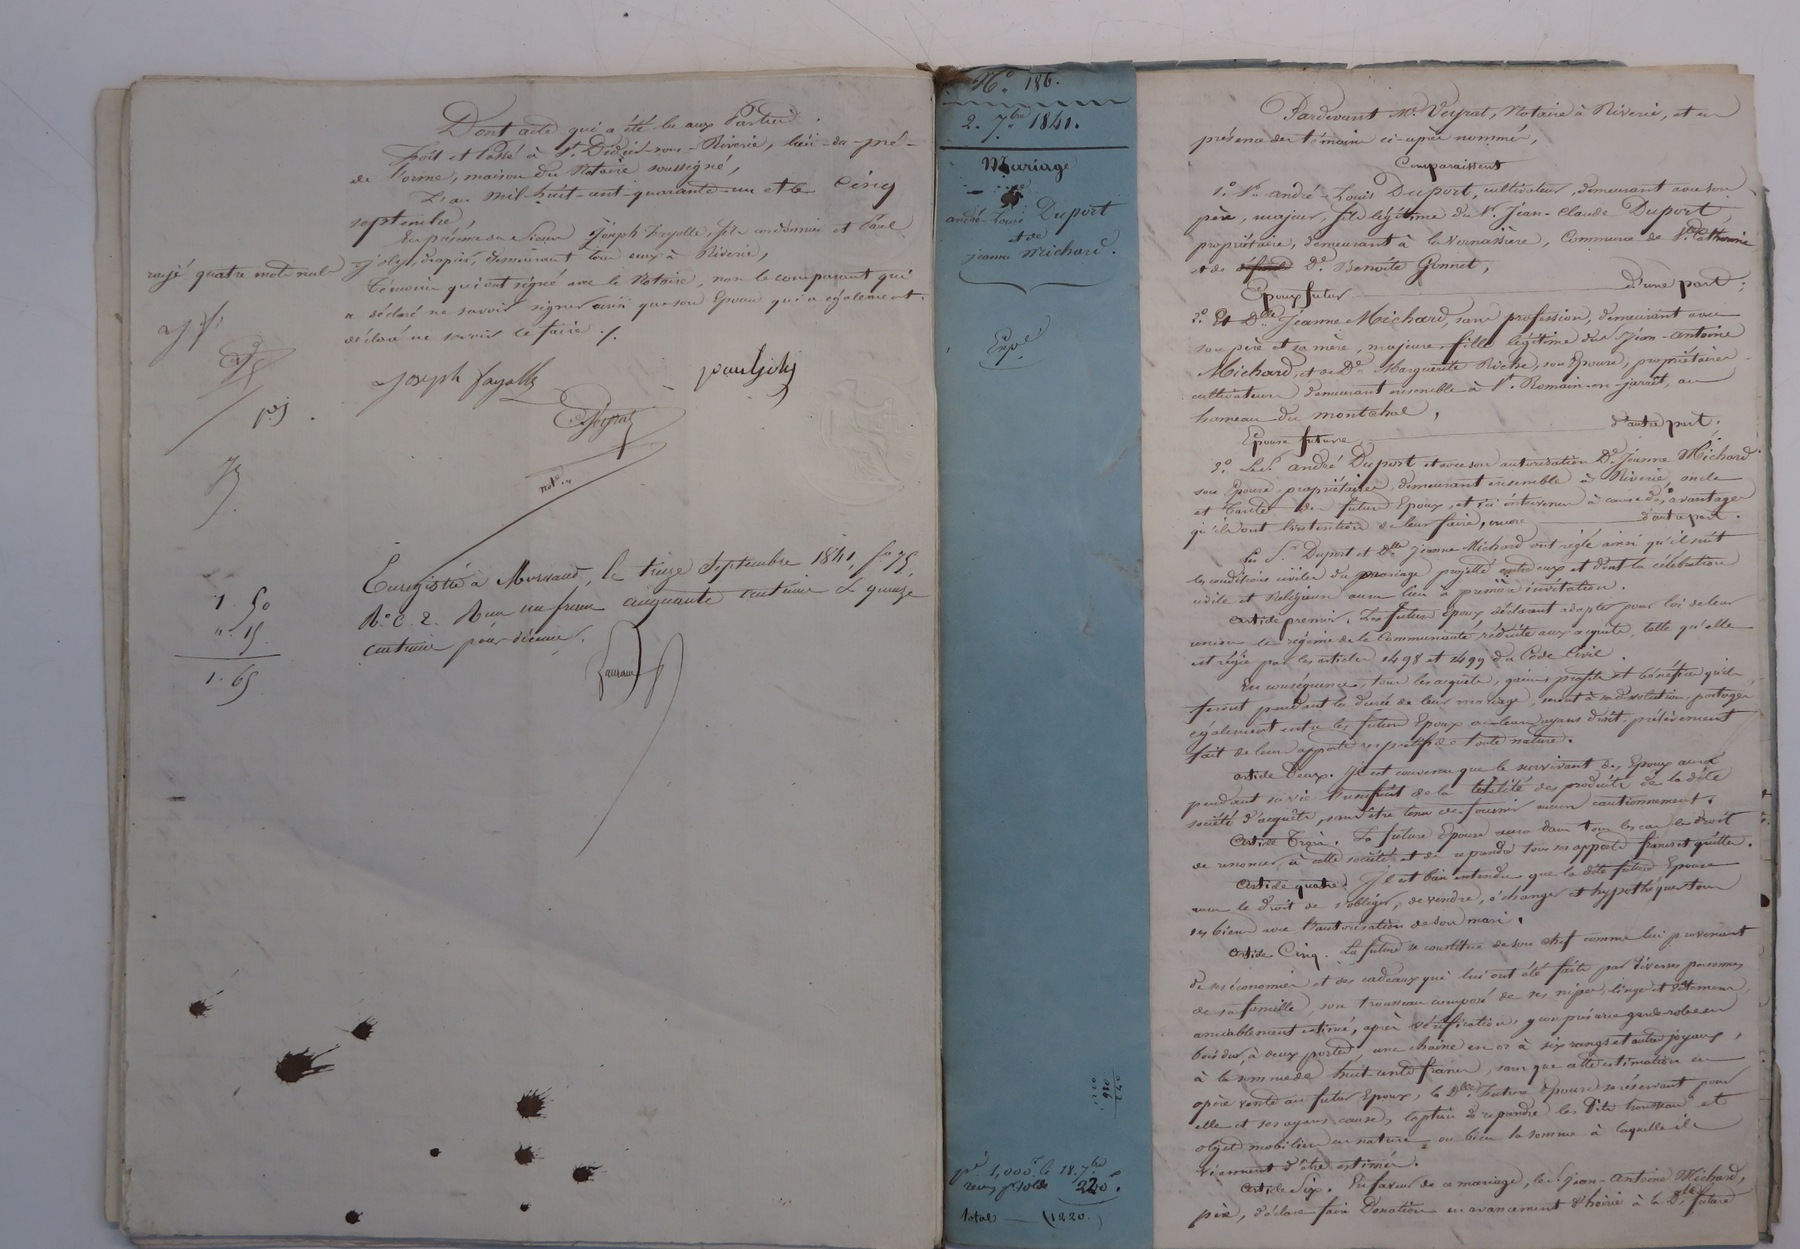 Dont acte qui a été lu aux Parties.
fait et Passé à St. Didier-sous-Riverie, lieu-du-pré-
de l'orme, maison du Notaire soussigné,
L'an mil-huit-cent-quarante-un et le cinq
septembre,
En présence de Sieurs Joseph Fayolle, fils cordonnier et Paul
Joly, drapier, demeurant tous deux à Riverie,
témoins qui ont signé avec le Notaire, non le comparant qui
a déclaré ne savoir signer ainsi que son Epouse qui a également
déclaré ne savoir le faire ./.
rayé quatre mots nuls
Joseph fayolle
pauljoly
Veyrat
not.re
Enregistré à Mornand, le treize Septembre 1841, fo 75,
R.o C. 2. Reçu un franc cinquante centimes et quinze
centimes pour décime.
1. 50
". 15
1. 65
N.o 186.
2. 7.bre 1841.
Mariage
andré-Louis Duport
et de
jeanne Michard.
Exp.é
1,000 le 18. 7.bre
reçu p. solde 220.
Total — (1220.)
Pardevant M.e Veyrat, Notaire à Riverie, et en
présence des témoins ci-après nommés,
Comparaissent
1.o S.r andré-Louis Duport, cultivateur, demeurant avec son
père, majeur, fils légitime du S.r Jean-Claude Duport
propriétaire, demeurant à la Vernassière, Commune de S.te Catherine
et de défunte D.e Benoite Gonnet,
Epoux futur d'une part;
2.o Et D.lle Jeanne Michard, sans profession, demeurant avec
son père et sa mère, majeure, fille légitime du S.r Jean-Antoine
Michard, et de D.e Marguerite Rivoire, son Epouse, propriétaires
cultivateurs demeurant ensemble à S.t Romain-en-jarret, au
hameau du montchal,
Epouse future d'autre part.
3.o Le S.r andré Duport et avec son autorisation D.e Jeanne Michard
son Epouse, propriétaires, demeurant ensemble à Riverie, oncle
et tante des futurs Epoux, et ici intervenus à cause des avantages
qu'ils ont l'intention de leur faire, encore d'autre part.
Les S.r Duport et D.lle Jeanne Michard ont réglé ainsi qu'il suit
les conditions civiles du mariage projetté entre eux et dont la célébration
civile et Religieuse aura lieu à première invitation.
article premier. Les futurs Epoux déclarent adopter pour loi de leur
union le régime de la Communauté réduite aux acquêts, telle qu'elle
est régie par les articles 1498 et 1499 du Code Civil.
En conséquence, tous les acquêts, gains, profits et bénéfices qu'ils
feront pendant la durée de leur mariage, seront à sa dissolution, partagés
également entre les futurs Epoux ou leurs ayans droit, prélèvement
fait de leurs apports respectifs de toute nature.
article Deux. Il est convenu que le survivant des Epoux aura
pendant sa vie l'usufruit de la totalité des produits de la dite
société d'acquêts, sans être tenu de fournir aucun cautionnement.
article Trois. La future Epouse aura dans tous les cas le droit
de renoncer à cette société et de reprendre tous ses apports francs et quittes.
article quatre. Il est bien entendu que la dite future Epouse
aura le droit de s'obliger, de vendre, échanger et hypothéquer tous
ses biens avec l'autorisation de son mari.
article Cinq. La future se constitue de son chef comme lui provenant
de ses économies et des cadeaux qui lui ont été faits par diverses personnes
de sa famille, son trousseau composé de ses nipes, linges et vêtemens
amiablement estimé, après vérification, y compris une garde-robe en
bois dur, à deux portes, une chaîne en or à six rangs et autres joyaux,
à la somme de huit cents francs, sans que cette estimation en
opère vente au futur Epoux, la D.lle future Epouse se réservant pour
elle et ses ayans cause, l'option de reprendre les dits trousseau et
objets mobiliers en nature ou bien la somme à laquelle ils
viennent d'être estimés.
article Six. En faveur de ce mariage, le S.r Jean-Antoine Michard,
père, déclare faire Donation en avancement d'hoirie à la D.lle future